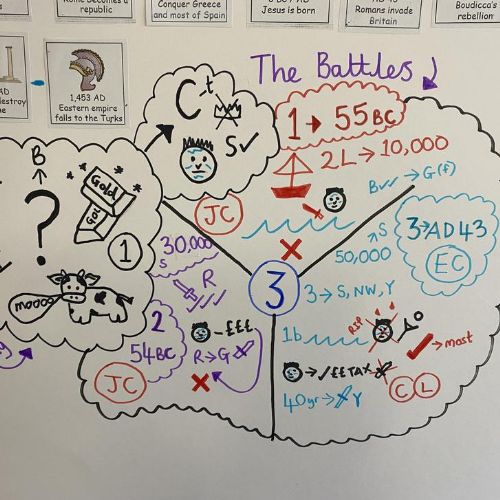 Rome becomes a
republic
Conquer Greece
and most of Spain
Jesus is born
Romans invade
Britain
Boudicca's
rebellion
AD
destroy
1,453 AD
Eastern empire
falls to the Turks
The Battles
C+
S✓
1→55BC
2L→10,000
B✓✓→G(f)
JC
B
?
Gold
Gol
1
moooo
30,000
S
R
3
→S
50,000
3→AD43
EC
3→S,NW,Y
2
54BC
JC
-£££
R→G
1b
RIP
→most
→/££TAX
CL
40yr→Y